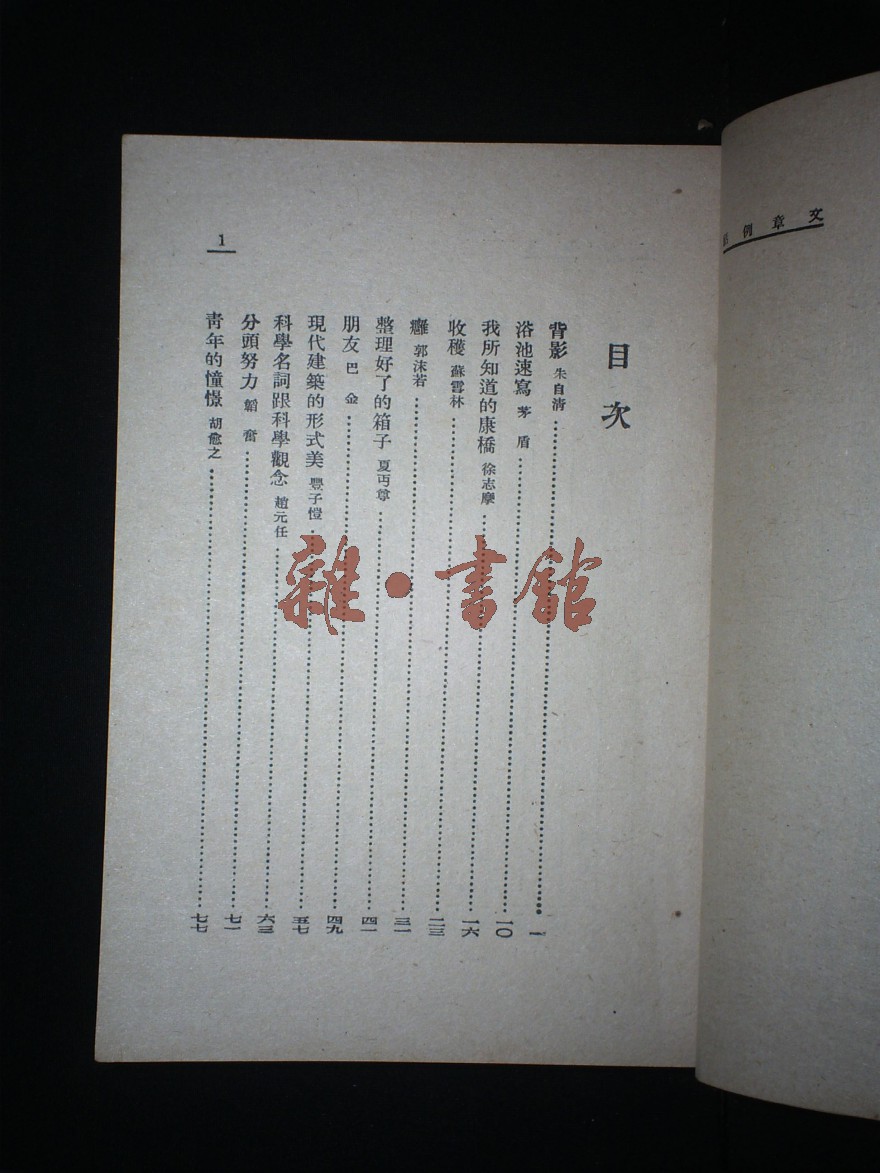 文章例
目次
背影 朱自清 一
浴池速寫 茅盾 一〇
我所知道的康橋 徐志摩 一六
收穫 蘇雪林 二三
癰 郭沫若 三一
整理好了的箱子 夏丏尊 四一
朋友 巴金 四九
現代建築的形式美 豐子愷 五七
科學名詞跟科學觀念 趙元任 六三
分頭努力 韜奮 七一
青年的憧憬 胡愈之 七七
1
雜·書館